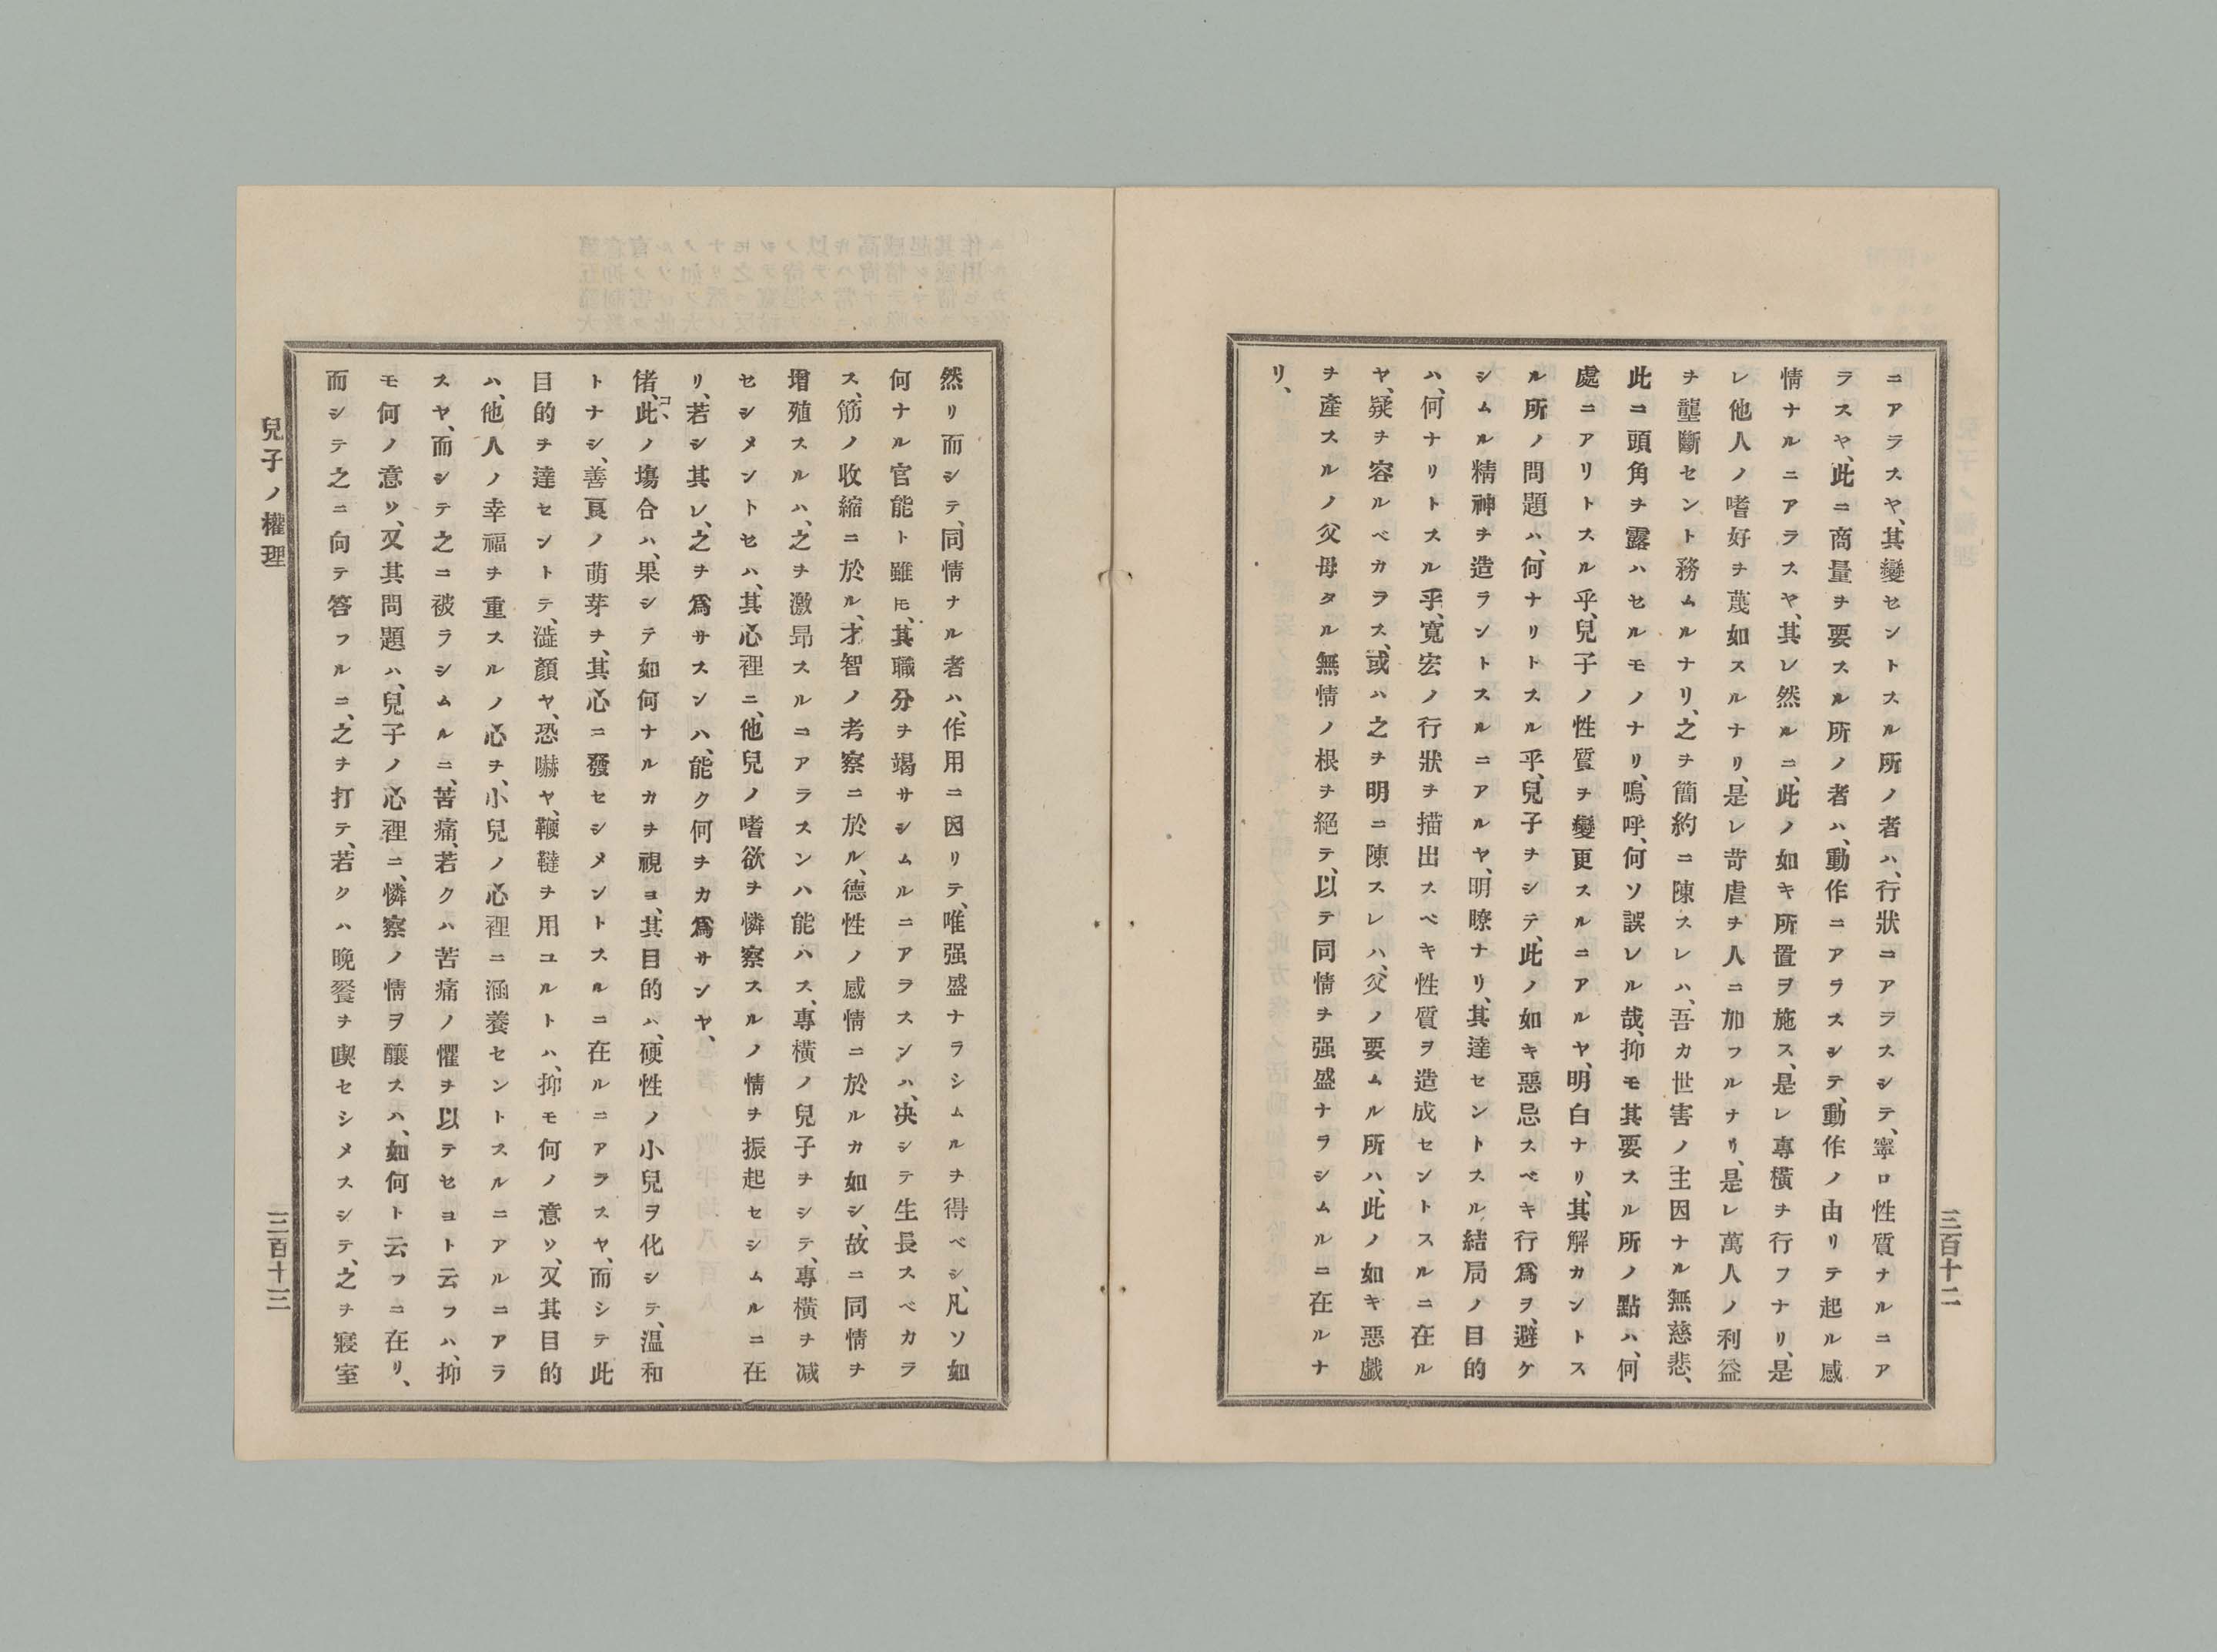 三百十二
ニアラスヤ、其變セントスル所ノ者ハ、行狀ニアラスシテ、寧ロ性質ナルニア
ラスヤ、此ニ商量チ要スル所ノ者ハ、動作ニアラスシテ、動作ノ由リテ起ル感
情ナルニアラスヤ、其レ然ルニ、此ノ如キ所置ヲ施ス、是レ專橫チ行フナリ、是
レ他人ノ嗜好チ蔑如スルナリ、是レ苛虐ヲ人ニ加フルナリ、是レ萬人ノ利益
チ壟斷セント務ムルナリ、之チ簡約ニ陳スレハ、吾カ世害ノ主因ナル無慈悲、
此ニ頭角チ露ハセルモノナリ、嗚呼、何ソ誤レル哉、抑モ其要スル所ノ點ハ、何
處ニアリトスル乎、兒子ノ性質ヲ變更スルニアルヤ、明白ナリ、其解カントス
ル所ノ問題ハ、何ナリトスル乎、兒子チシテ、此ノ如キ惡忌スベキ行爲ヲ、避ケ
シムル精神チ造ラントスルニアルヤ、明瞭ナリ、其達セントスル結局ノ目的
ハ、何ナリトスル乎、寬宏ノ行狀チ描出スベキ性質ヲ造成セントスルニ在ル
ヤ、疑チ容ルベカラス、或ハ之チ明ニ陳スレハ、父ノ要ムル所ハ、此ノ如キ惡戲
チ產スルノ父母タル無情ノ根チ絕テ、以テ同情チ强盛ナラシムルニ在ルナ
リ、
然リ而シテ、同情ナル者ハ、作用ニ因リテ、唯强盛ナラシムルチ得ベシ、凡ソ如
何ナル官能ト雖𪜈、其職分チ竭サシムルニアラスンハ、决シテ生長スベカラ
ス、筋ノ收縮ニ於ル、才智ノ考察ニ於ル、德性ノ感情ニ於ルカ如シ、故ニ同情チ
增殖スルハ、之チ激昻スルコアラスンハ能ハス、專橫ノ兒子チシテ、專橫チ减
セシメントセハ、其心裡ニ、他兒ノ嗜欲チ憐察スルノ情チ振起セシムルニ在
リ、若シ其レ、之チ爲サスンハ、能ク何チカ爲サンヤ、
偖、コヽ此ノ塲合ハ、果シテ如何ナルカチ視ヨ、其目的ハ、硬性ノ小兒ヲ化シテ、温和
トナシ、善良ノ萌芽チ、其心ニ發セシメントスルニ在ルニアラスヤ、而シテ此
目的チ達セントテ、澁顏ヤ、恐嚇ヤ、鞭韃チ用ユルトハ、抑モ何ノ意ソ、又其目的
ハ、他人ノ幸福チ重スルノ心チ、小兒ノ心裡ニ涵養セントスルニアルニアラ
スヤ、而シテ之ニ被ラシムルニ、苦痛、若クハ苦痛ノ懼チ以テセヨト云フハ、抑
モ何ノ意ソ、又其問題ハ、兒子ノ心裡ニ、憐察ノ情ヲ釀スハ、如何ト云フニ在リ、
而シテ之ニ向テ答フルニ、之チ打テ、若クハ晚餐チ喫セシメスシテ、之チ寢室
兒子ノ權理
三百十三